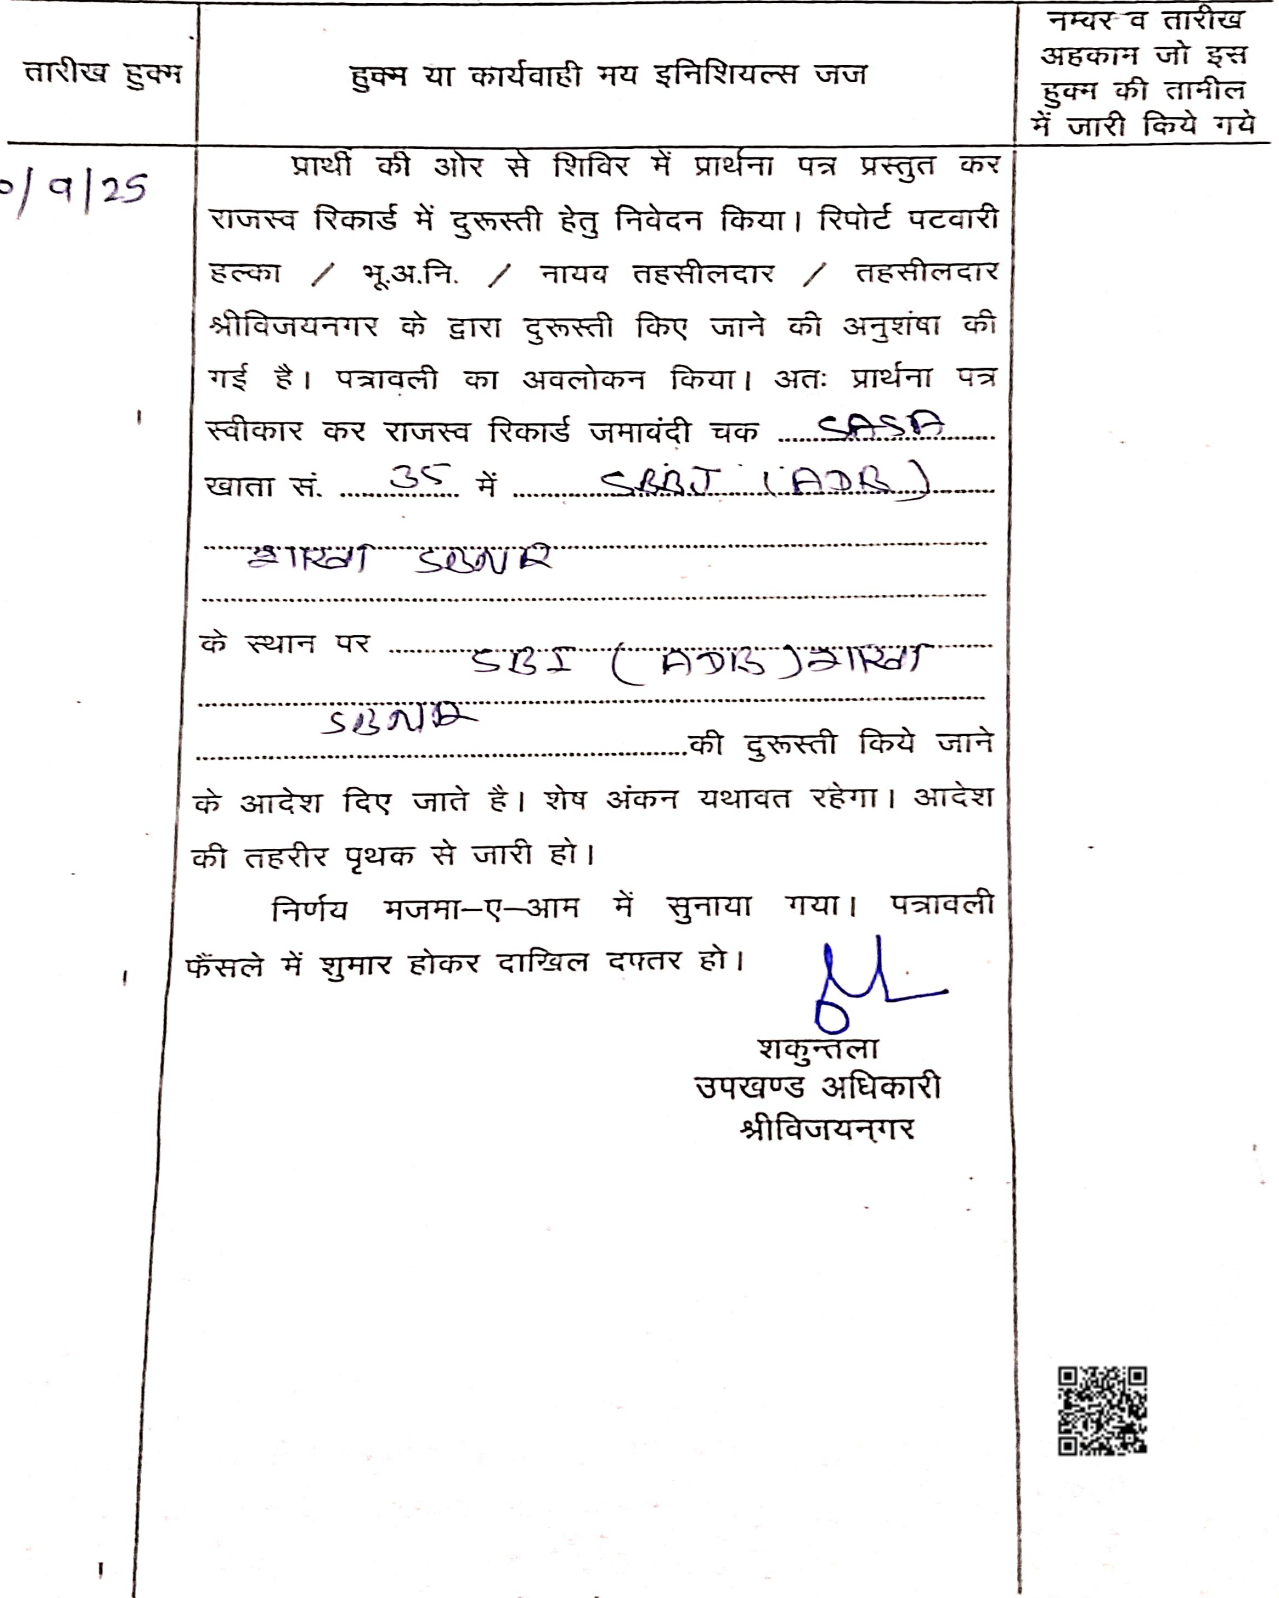 तारीख हुक्म
हुक्म या कार्यवाही मय इनिशियल्स जज
नम्बर व तारीख
अहकाम जो इस
हुक्म की तामील
में जारी किये गये
/9/25
प्रार्थी की ओर से शिविर में प्रार्थना पत्र प्रस्तुत कर
राजस्व रिकार्ड में दुरूस्ती हेतु निवेदन किया। रिपोर्ट पटवारी
हल्का / भू.अ.नि. / नायब तहसीलदार / तहसीलदार
श्रीविजयनगर के द्वारा दुरूस्ती किए जाने की अनुशंषा की
गई है। पत्रावली का अवलोकन किया। अतः प्रार्थना पत्र
स्वीकार कर राजस्व रिकार्ड जमाबंदी चक ....................
खाता सं. 35 में SBBJ (ADB)
शाखा SBNR
के स्थान पर SBI (ADB) शाखा
SBNR
की दुरूस्ती किये जाने
के आदेश दिए जाते है। शेष अंकन यथावत रहेगा। आदेश
की तहरीर पृथक से जारी हो।
निर्णय मजमा–ए–आम में सुनाया गया। पत्रावली
फैंसले में शुमार होकर दाखिल दफ्तर हो।
शकुन्तला
उपखण्ड अधिकारी
श्रीविजयनगर